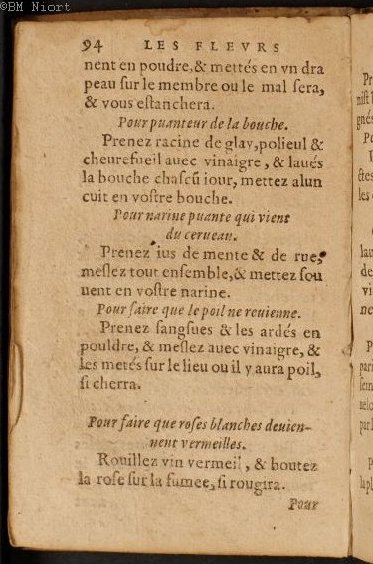 ©BM Niort
94 LES FLEVRS
nent en poudre, & mettés en vn dra
peau ſur le membre ou le mal ſera,
& vous eſtanchera.
Pour puanteur de la bouche.
Prenez racine de glav, polieul &
cheurefueil auec vinaigre, & laués
la bouche chaſcũ iour, mettez alun
cuit en voſtre bouche.
Pour narine puante qui vient
du cerueau.
Prenez ius de mente & de rue,
meſlez tout enſemble, & mettez ſou
uent en voſtre narine.
Pour faire que le poil ne reuienne.
Prenez ſangſues & les ardés en
pouldre, & meſlez auec vinaigre, &
les metés ſur le lieu ou il y aura poil,
ſi cherra.
Pour faire que roſes blanches deuien-
nent vermeilles.
Rouillez vin vermeil, & boutez
la roſe ſur la fumee, ſi rougira.
Pour